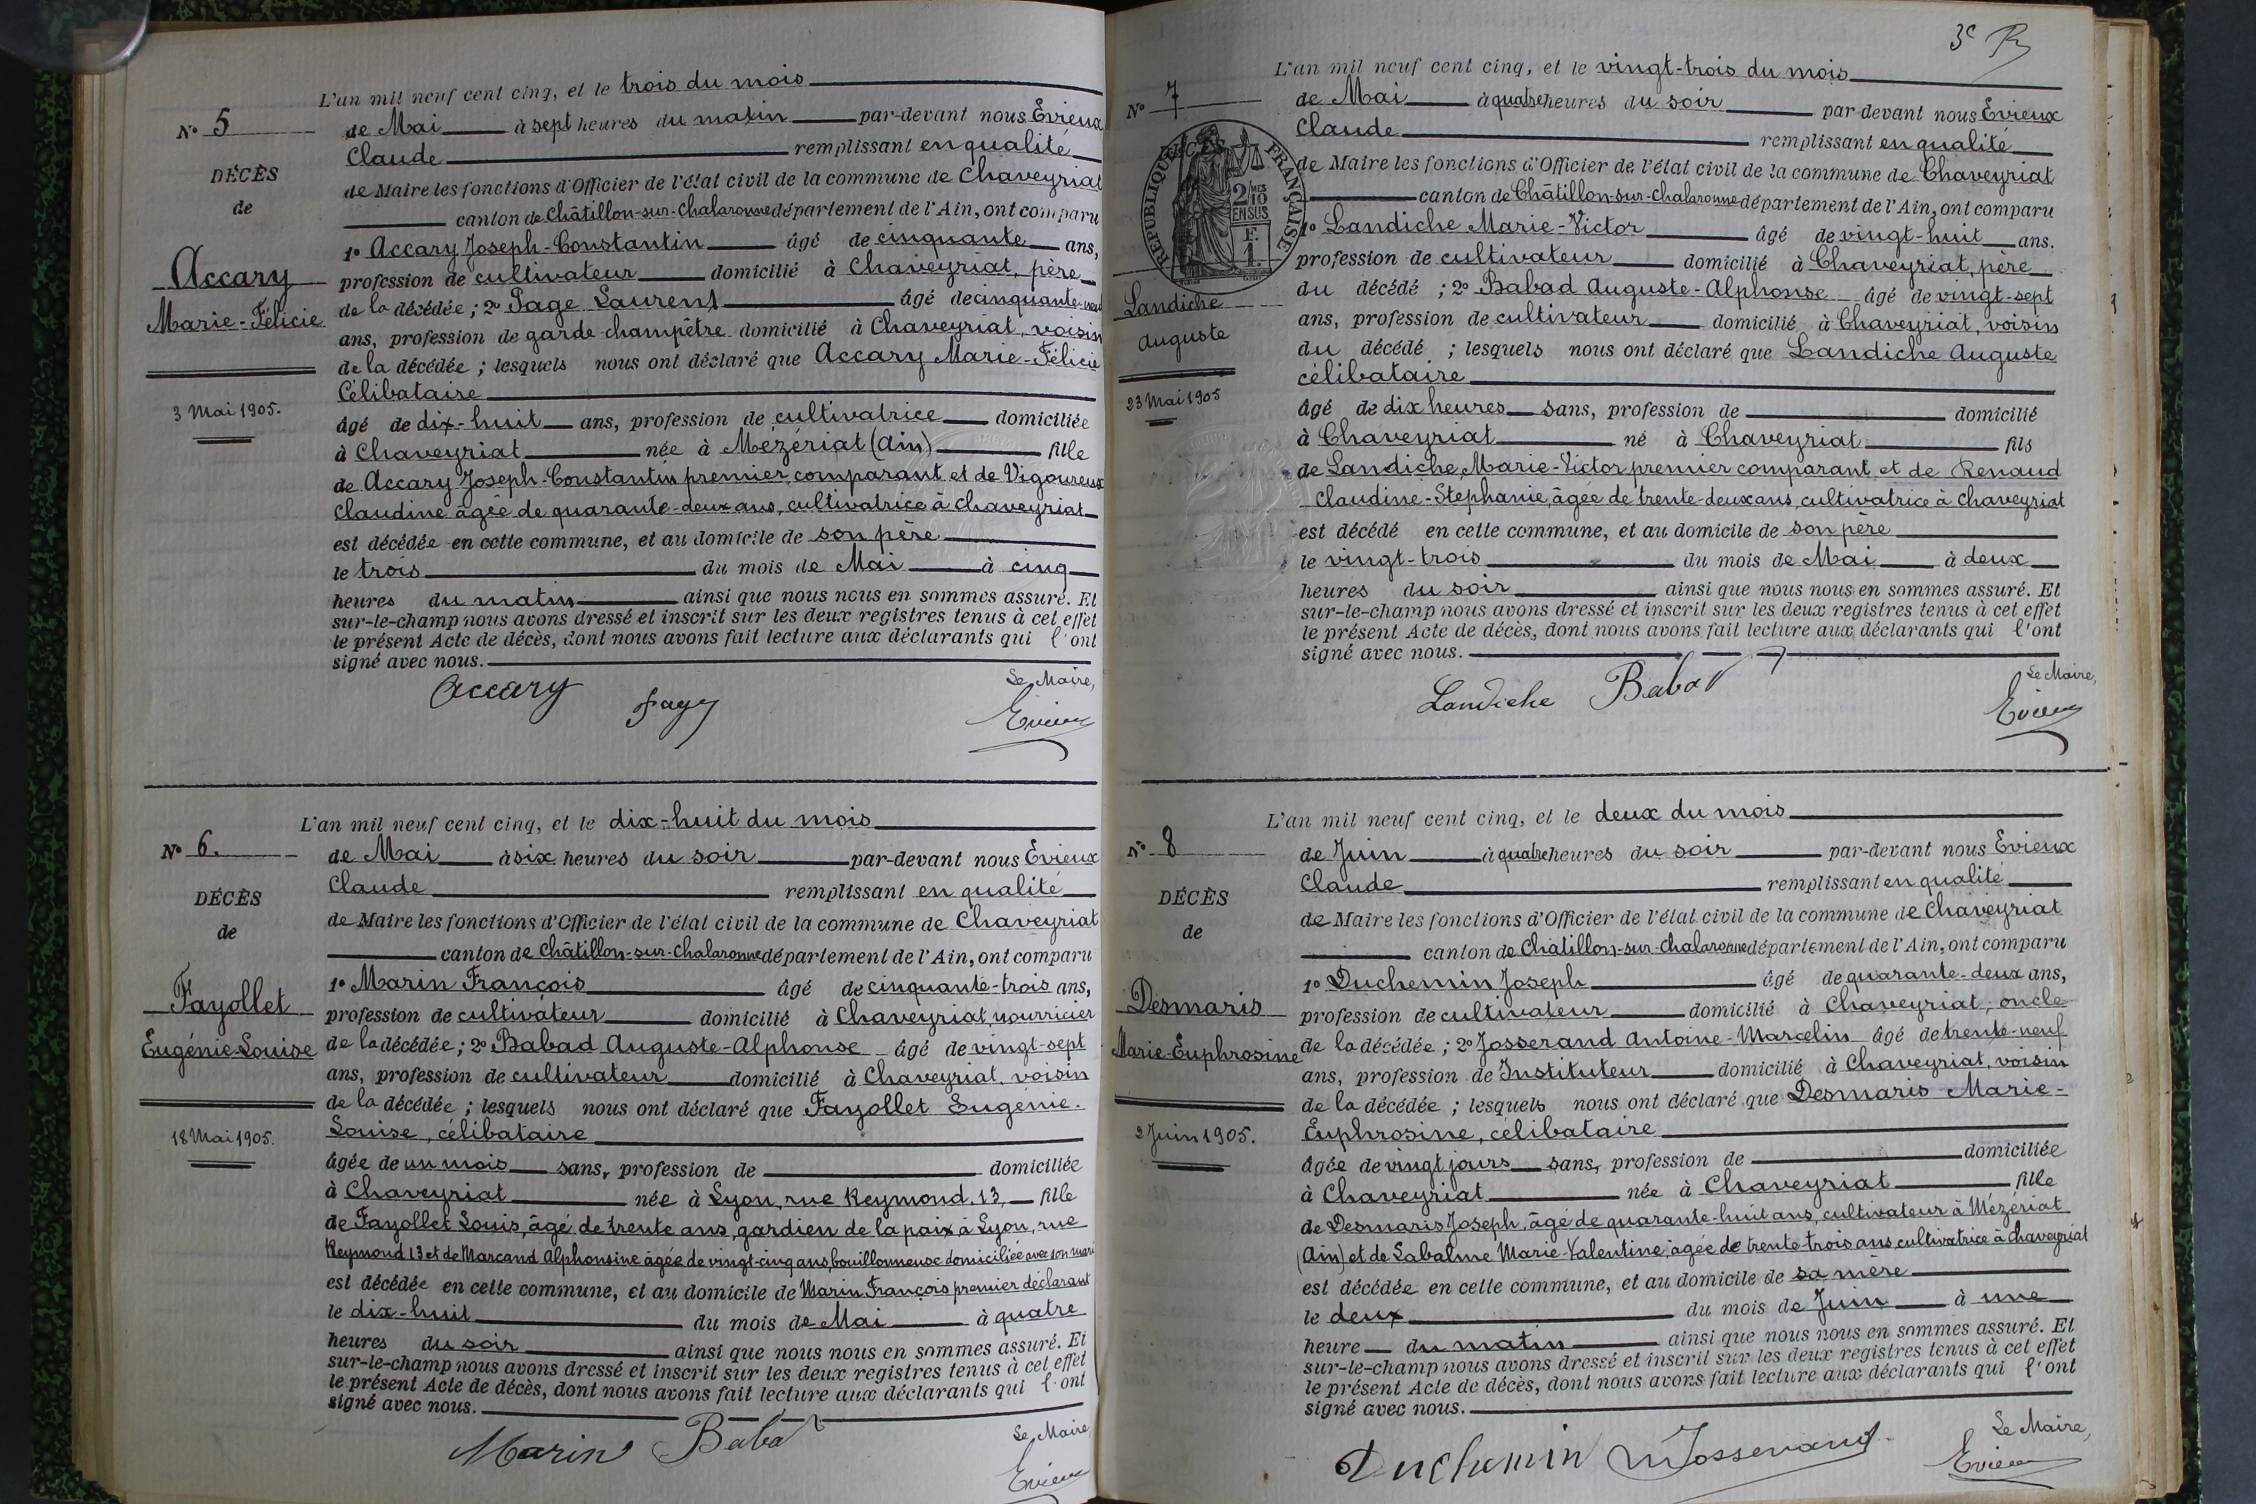 N° 5
DÉCÈS
de
Accary
Marie-Félicie
3 Mai 1905.
L'an mil neuf cent cinq, et le trois du mois
de Mai à sept heures du matin par-devant nous Evieux
Claude remplissant en qualité
de Maire les fonctions d'Officier de l'état civil de la commune de Chaveyriat
canton de Châtillon-sur-Chalaronne département de l'Ain, ont comparu
1° Accary Joseph-Constantin âgé de cinquante ans,
profession de cultivateur domicilié à Chaveyriat, père
de la décédée ; 2° Page Laurent âgé de cinquante-neuf
ans, profession de garde-champêtre domicilié à Chaveyriat, voisin
de la décédée ; lesquels nous ont déclaré que Accary Marie-Félicie
Célibataire
âgé de dix-huit ans, profession de cultivatrice domiciliée
à Chaveyriat née à Mézériat (Ain) fille
de Accary Joseph-Constantin premier comparant et de Vigoureux
Claudine âgée de quarante-deux ans, cultivatrice à Chaveyriat
est décédée en cette commune, et au domicile de son père
le trois du mois de Mai à cinq
heures du matin ainsi que nous nous en sommes assuré. Et
sur-le-champ nous avons dressé et inscrit sur les deux registres tenus à cet effet
le présent Acte de décès, dont nous avons fait lecture aux déclarants qui l'ont
signé avec nous.
Le Maire,
Accary Page Evieux
N° 6.
DÉCÈS
de
Fayollet
Eugénie-Louise
18 Mai 1905.
L'an mil neuf cent cinq, et le dix-huit du mois
de Mai à six heures du soir par-devant nous Evieux
Claude remplissant en qualité
de Maire les fonctions d'Officier de l'état civil de la commune de Chaveyriat
canton de Châtillon-sur-Chalaronne département de l'Ain, ont comparu
1° Marin François âgé de cinquante-trois ans,
profession de cultivateur domicilié à Chaveyriat, nourricier
de la décédée ; 2° Babad Auguste-Alphonse âgé de vingt-sept
ans, profession de cultivateur domicilié à Chaveyriat, voisin
de la décédée ; lesquels nous ont déclaré que Fayollet Eugénie-
Louise, célibataire
âgée de un mois sans, profession de domiciliée
à Chaveyriat née à Lyon, rue Reymond, 13, fille
de Fayollet Louis, âgé de trente ans, gardien de la paix à Lyon, rue
Reymond 13 et de Marcand Alphonsine âgée de vingt-cinq ans, bouillonneuse domiciliée avec son mari
est décédée en cette commune, et au domicile de Marin François premier déclarant
le dix-huit du mois de Mai à quatre
heures du soir ainsi que nous nous en sommes assuré. Et
sur-le-champ nous avons dressé et inscrit sur les deux registres tenus à cet effet
le présent Acte de décès, dont nous avons fait lecture aux déclarants qui l'ont
signé avec nous.
Le Maire
Marin Babad Evieux
3e
N° 7
RÉPUBLIQUE FRANÇAISE
2 MES
10
EN SUS
F.
1.
Landiche
Auguste
23 Mai 1905
L'an mil neuf cent cinq, et le vingt-trois du mois
de Mai à quatre heures du soir par-devant nous Evieux
Claude remplissant en qualité
de Maire les fonctions d'Officier de l'état civil de la commune de Chaveyriat
canton de Châtillon-sur-Chalaronne département de l'Ain, ont comparu
1° Landiche Marie-Victor âgé de vingt-huit ans.
profession de cultivateur domicilié à Chaveyriat, père
du décédé ; 2° Babad Auguste-Alphonse âgé de vingt-sept
ans, profession de cultivateur domicilié à Chaveyriat, voisin
du décédé ; lesquels nous ont déclaré que Landiche Auguste
célibataire
âgé de dix heures sans, profession de domicilié
à Chaveyriat né à Chaveyriat fils
de Landiche Marie-Victor premier comparant et de Renaud
Claudine-Stéphanie, âgée de trente-deux ans, cultivatrice à Chaveyriat
est décédé en cette commune, et au domicile de son père
le vingt-trois du mois de Mai à deux
heures du soir ainsi que nous nous en sommes assuré. Et
sur-le-champ nous avons dressé et inscrit sur les deux registres tenus à cet effet
le présent Acte de décès, dont nous avons fait lecture aux déclarants qui l'ont
signé avec nous.
Le Maire,
Landiche Babad Evieux
N° 8
DÉCÈS
de
Desmaris
Marie-Euphrosine
2 Juin 1905.
L'an mil neuf cent cinq, et le deux du mois
de Juin à quatre heures du soir par-devant nous Evieux
Claude remplissant en qualité
de Maire les fonctions d'Officier de l'état civil de la commune de Chaveyriat
canton de Châtillon-sur-Chalaronne département de l'Ain, ont comparu
1° Duchemin Joseph âgé de quarante-deux ans,
profession de cultivateur domicilié à Chaveyriat, oncle
de la décédée ; 2° Josserand Antoine-Marcelin âgé de trente-neuf
ans, profession de Instituteur domicilié à Chaveyriat, voisin
de la décédée ; lesquels nous ont déclaré que Desmaris Marie-
Euphrosine, célibataire
âgée de vingt jours sans, profession de domiciliée
à Chaveyriat née à Chaveyriat fille
de Desmaris Joseph, âgé de quarante-huit ans, cultivateur à Mézériat
(Ain) et de Labalme Marie-Valentine, âgée de trente-trois ans, cultivatrice à Chaveyriat
est décédée en cette commune, et au domicile de sa mère
le deux du mois de Juin à une
heure du matin ainsi que nous nous en sommes assuré. Et
sur-le-champ nous avons dressé et inscrit sur les deux registres tenus à cet effet
le présent Acte de décès, dont nous avons fait lecture aux déclarants qui l'ont
signé avec nous.
Le Maire,
Duchemin Josserand Evieux